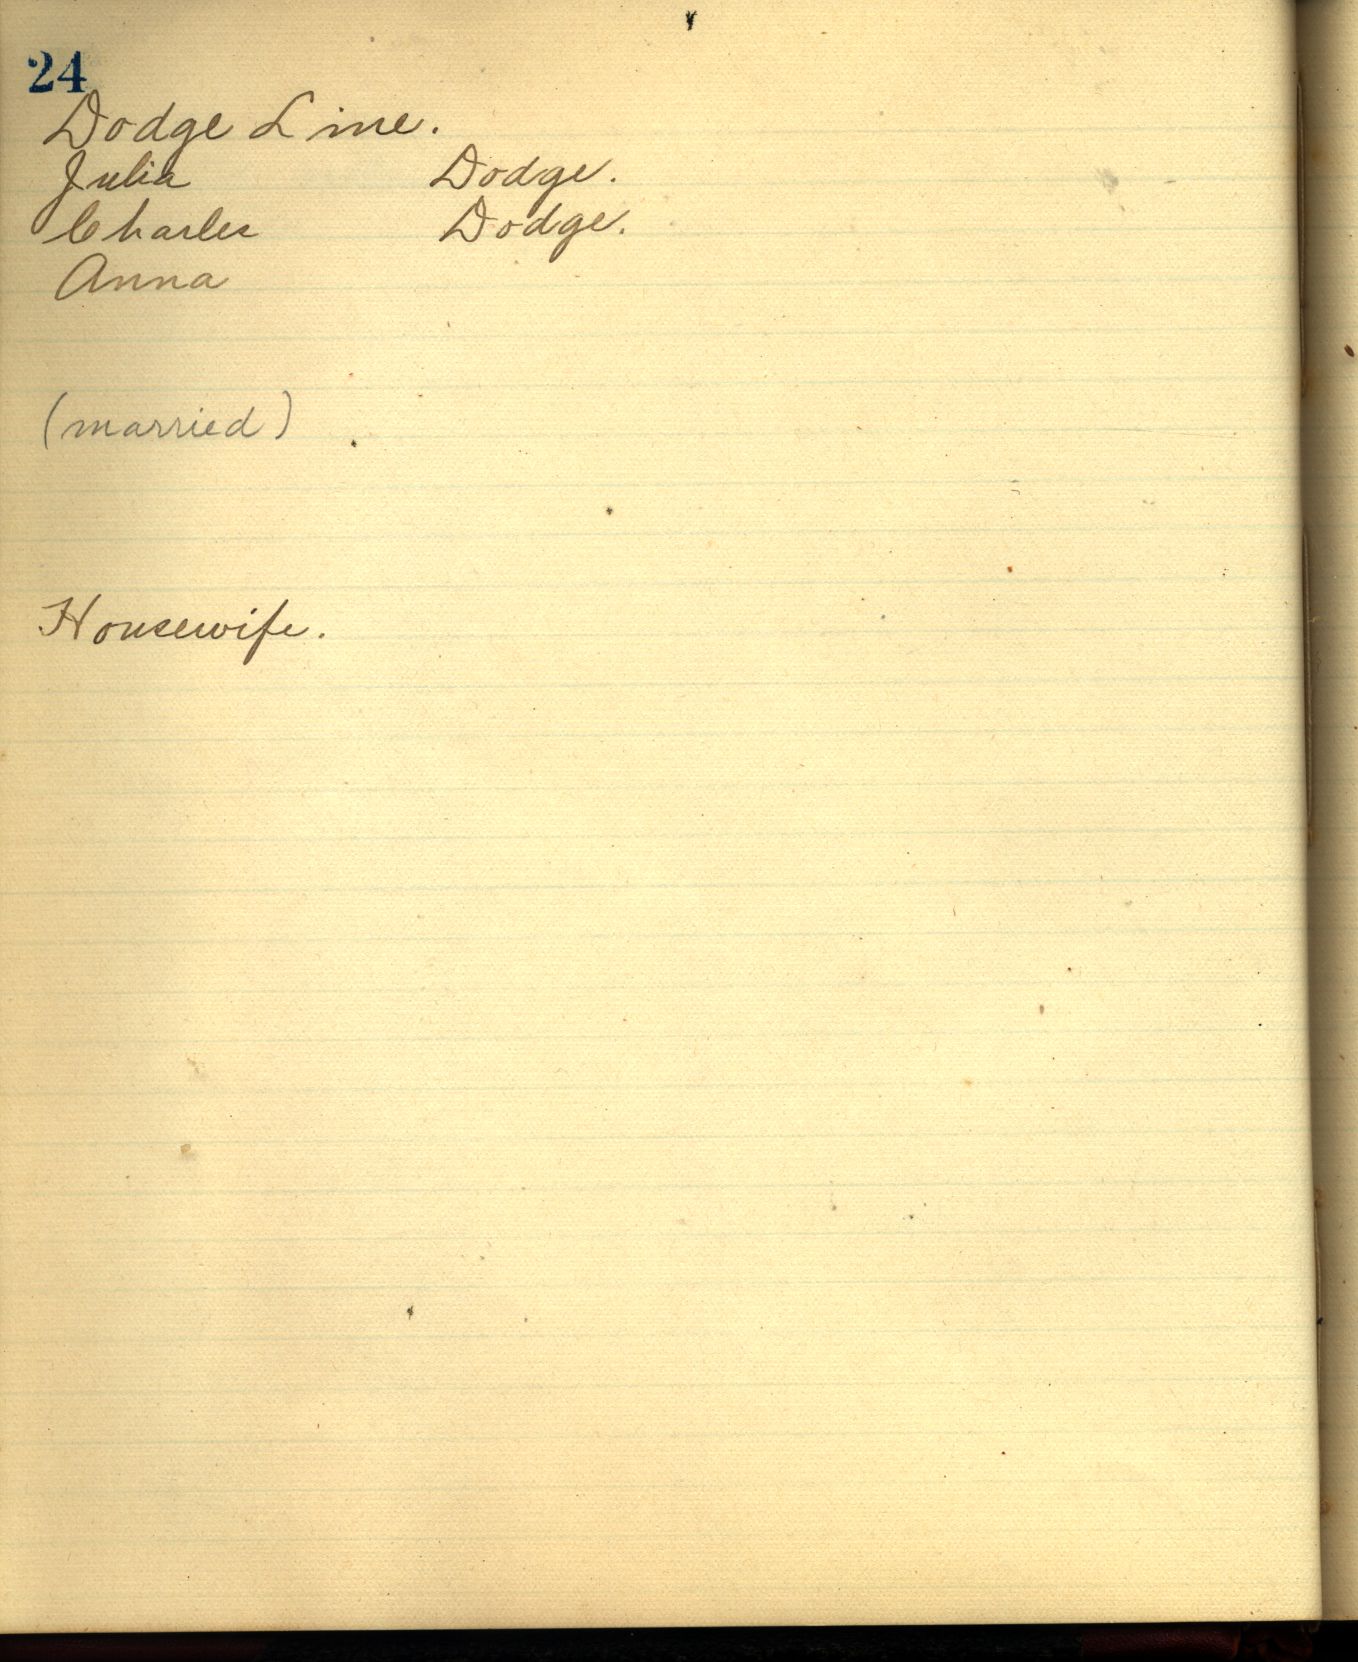 24
Dodge Line.
Julia Dodge.
Charles Dodge.
Anna
(married)
Housewife.